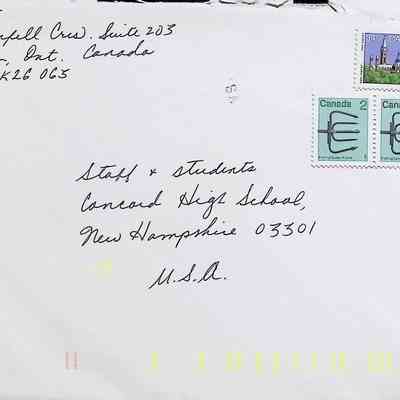 Cres. Suite 203
Ont. Canada
K2G 0G5
Canada 2
Canada
Staff & students
Concord High School,
New Hampshire 03301
U.S.A.